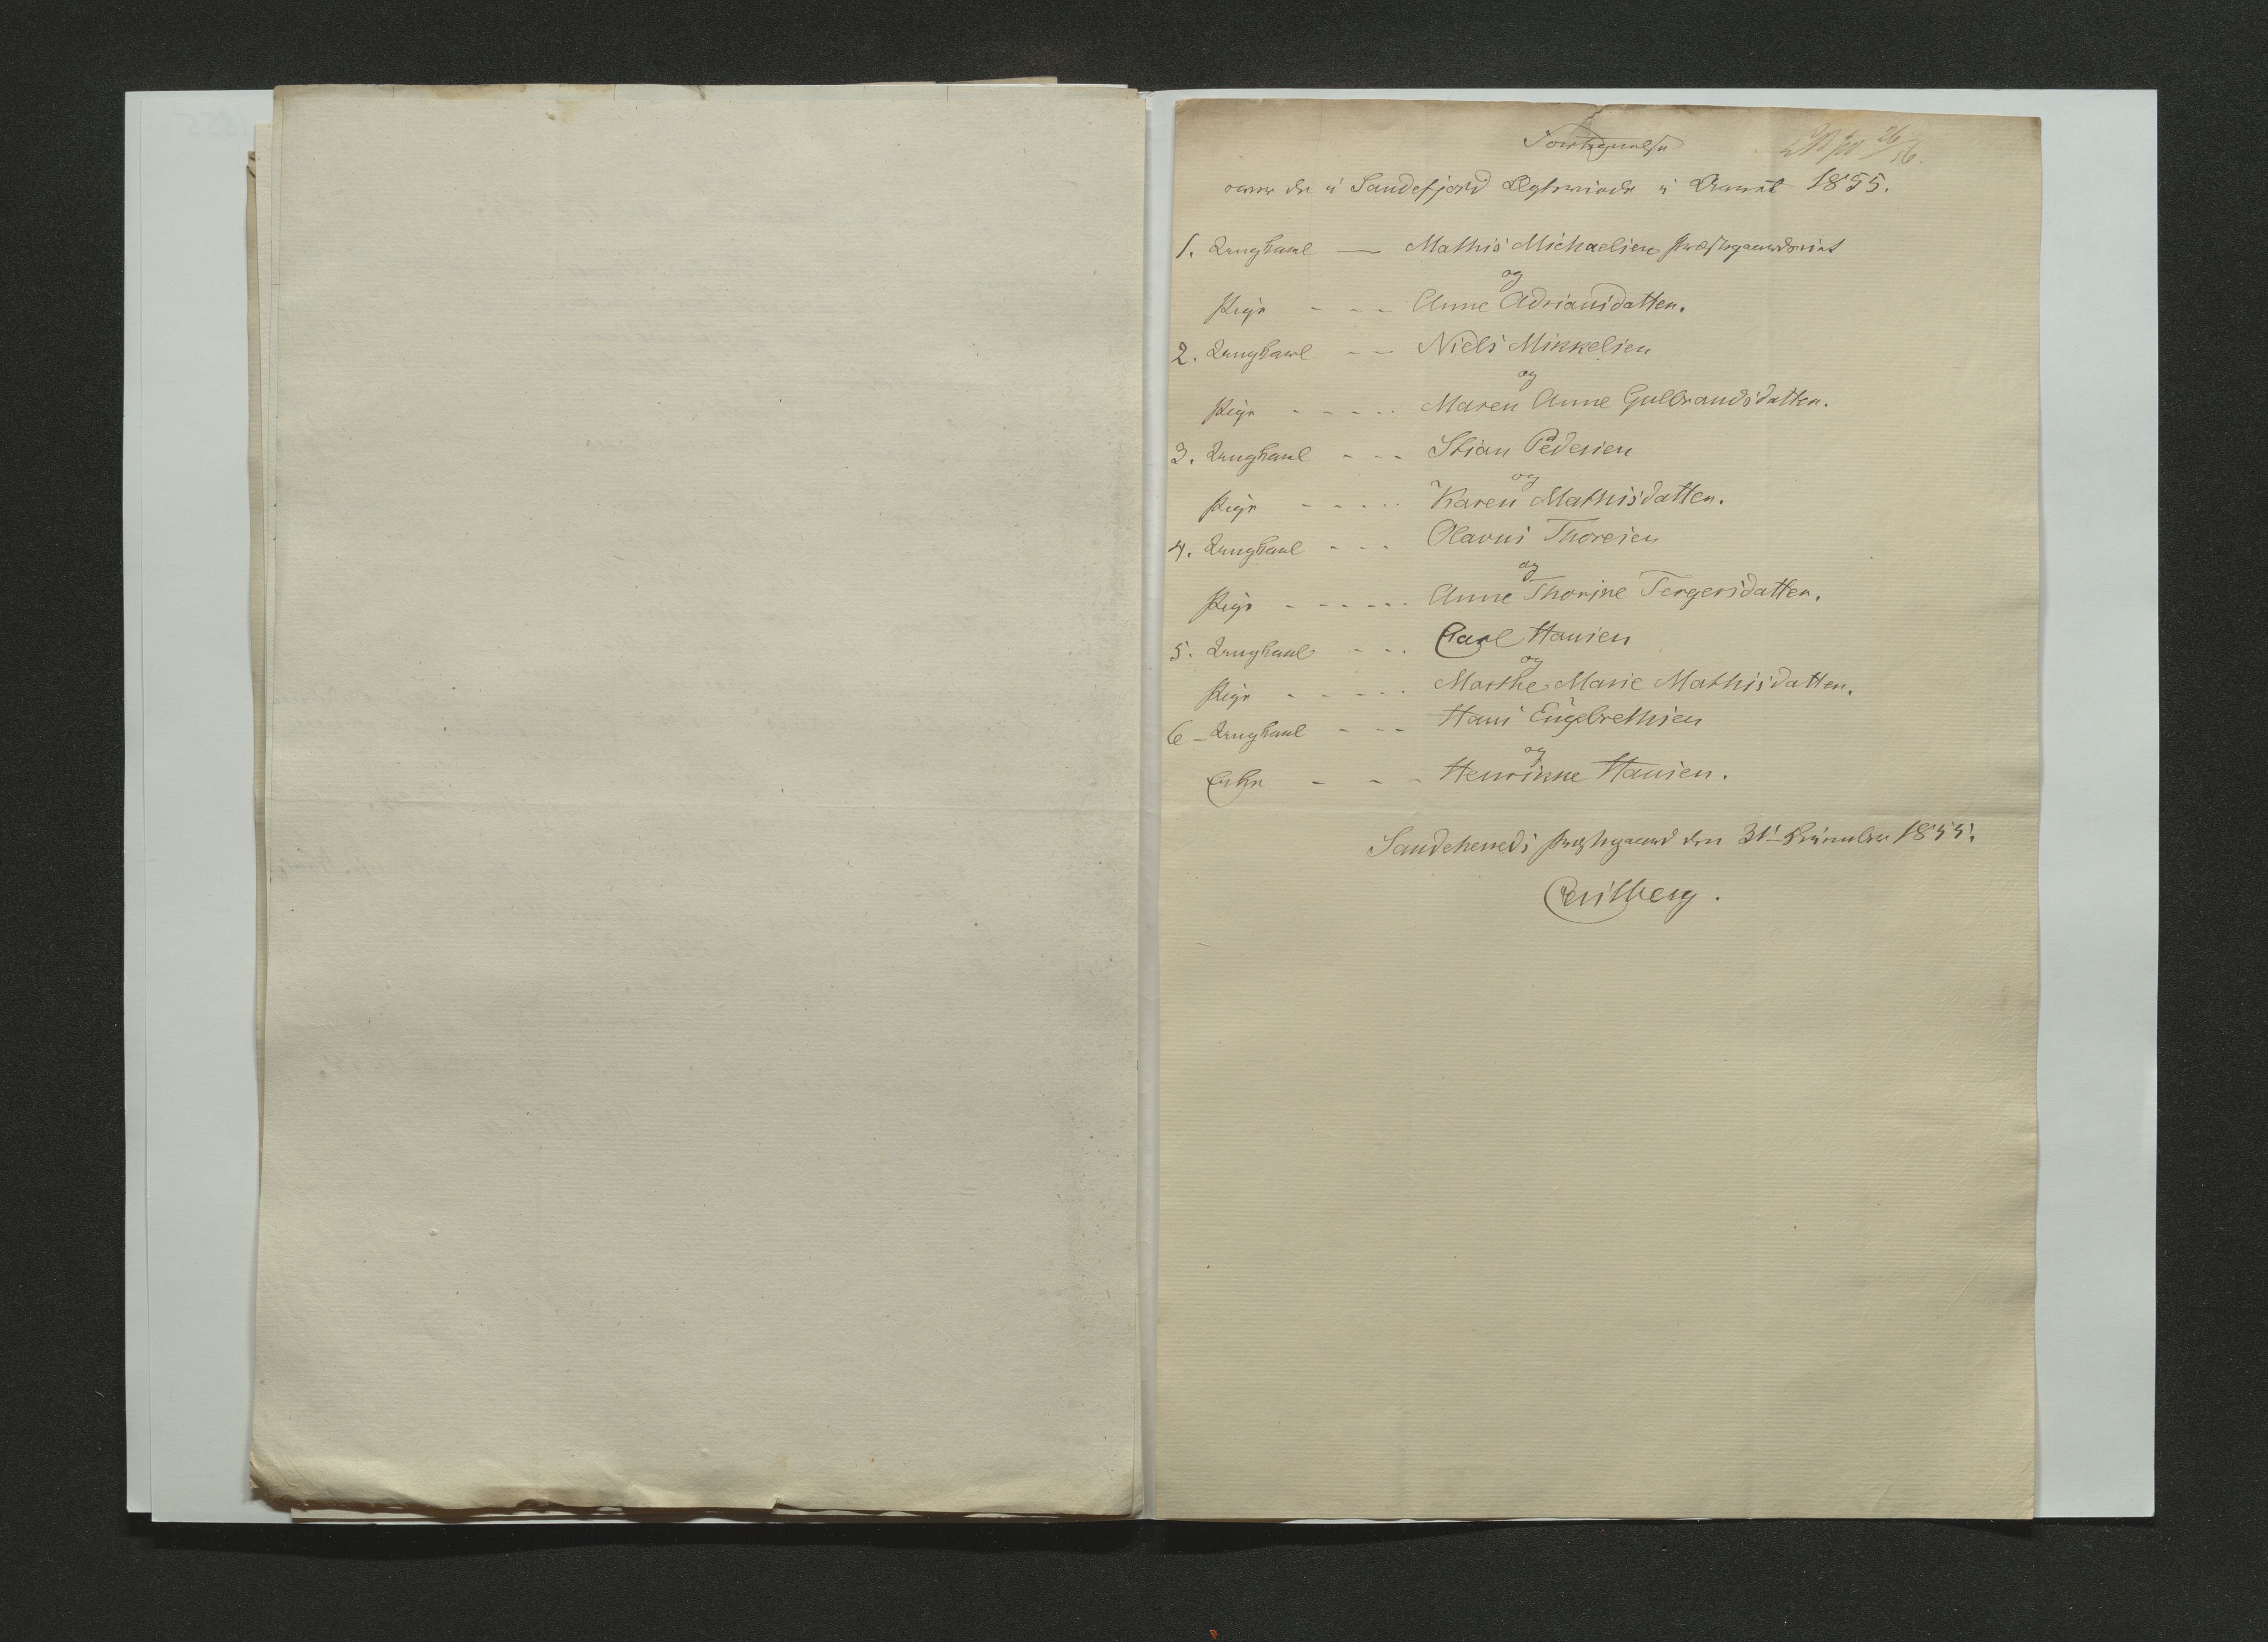 Fortegnelse
over de i Sandefjord Ægteviede i Aaret 1855.
1. Ungkarl — Mathis Michaelsen Præstegaardseiet
og
Pige - - - Anne Adriansdatter.
2. Ungkarl - - Niels Mikkelsen
og
Pige - - - - - Maren Anne Gulbrandsdatter.
3. Ungkarl - - - Stian Pedersen
og
Pige - - - - - Karen Mathisdatter.
4. Ungkarl - - - Olavus Thoresen
og
Pige - - - - - - Anne Thorine Tergersdatter.
5. Ungkarl - - - Carl Hansen
og
Pige - - - - - Marthe Marie Mathisdatter.
6 - Ungkarl - - - Hans Engebrethsen
og
Enke - - - Henrikke Hansen.
Sandeherreds Præstegaard den 31' December 1855.